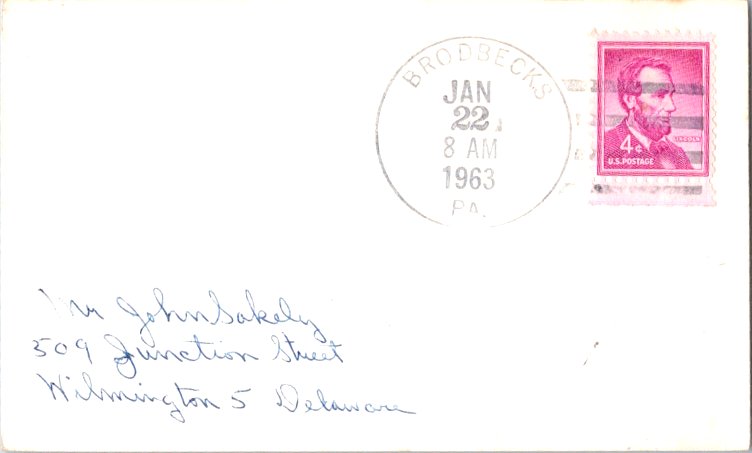 BRODBECKS
JAN
22
8 AM
1963
PA.
LINCOLN
4¢
U.S. POSTAGE
Mr John Sakely
509 Junction Street
Wilmington 5 Delaware